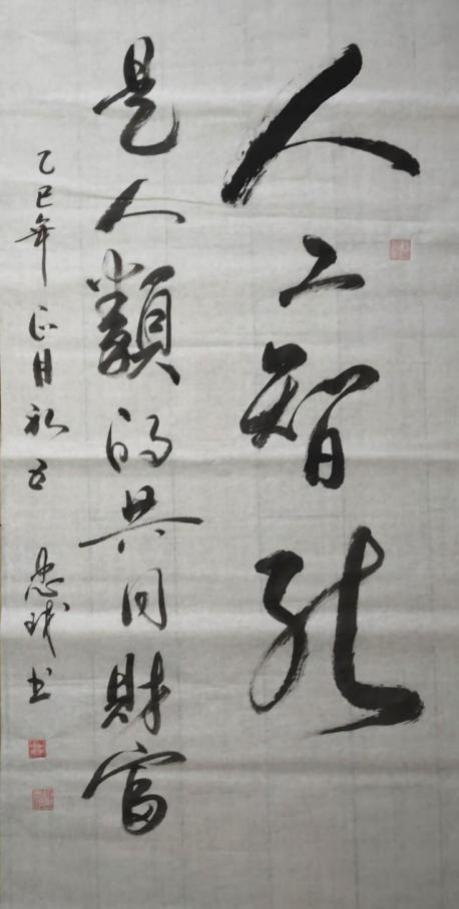 人工智能
是人類的共同財富
乙巳年 正月初五 忠球书